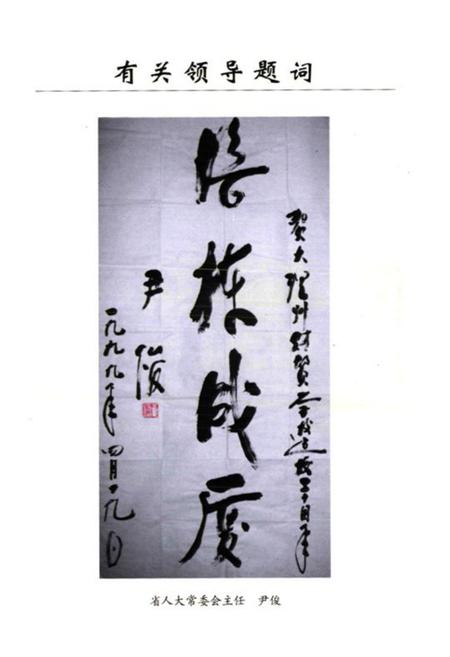 有关领导题词
贺大理州财贸学校建校二十周年
培栋成厦
尹俊
一九九九年四月十九日
省人大常委会主任 尹俊